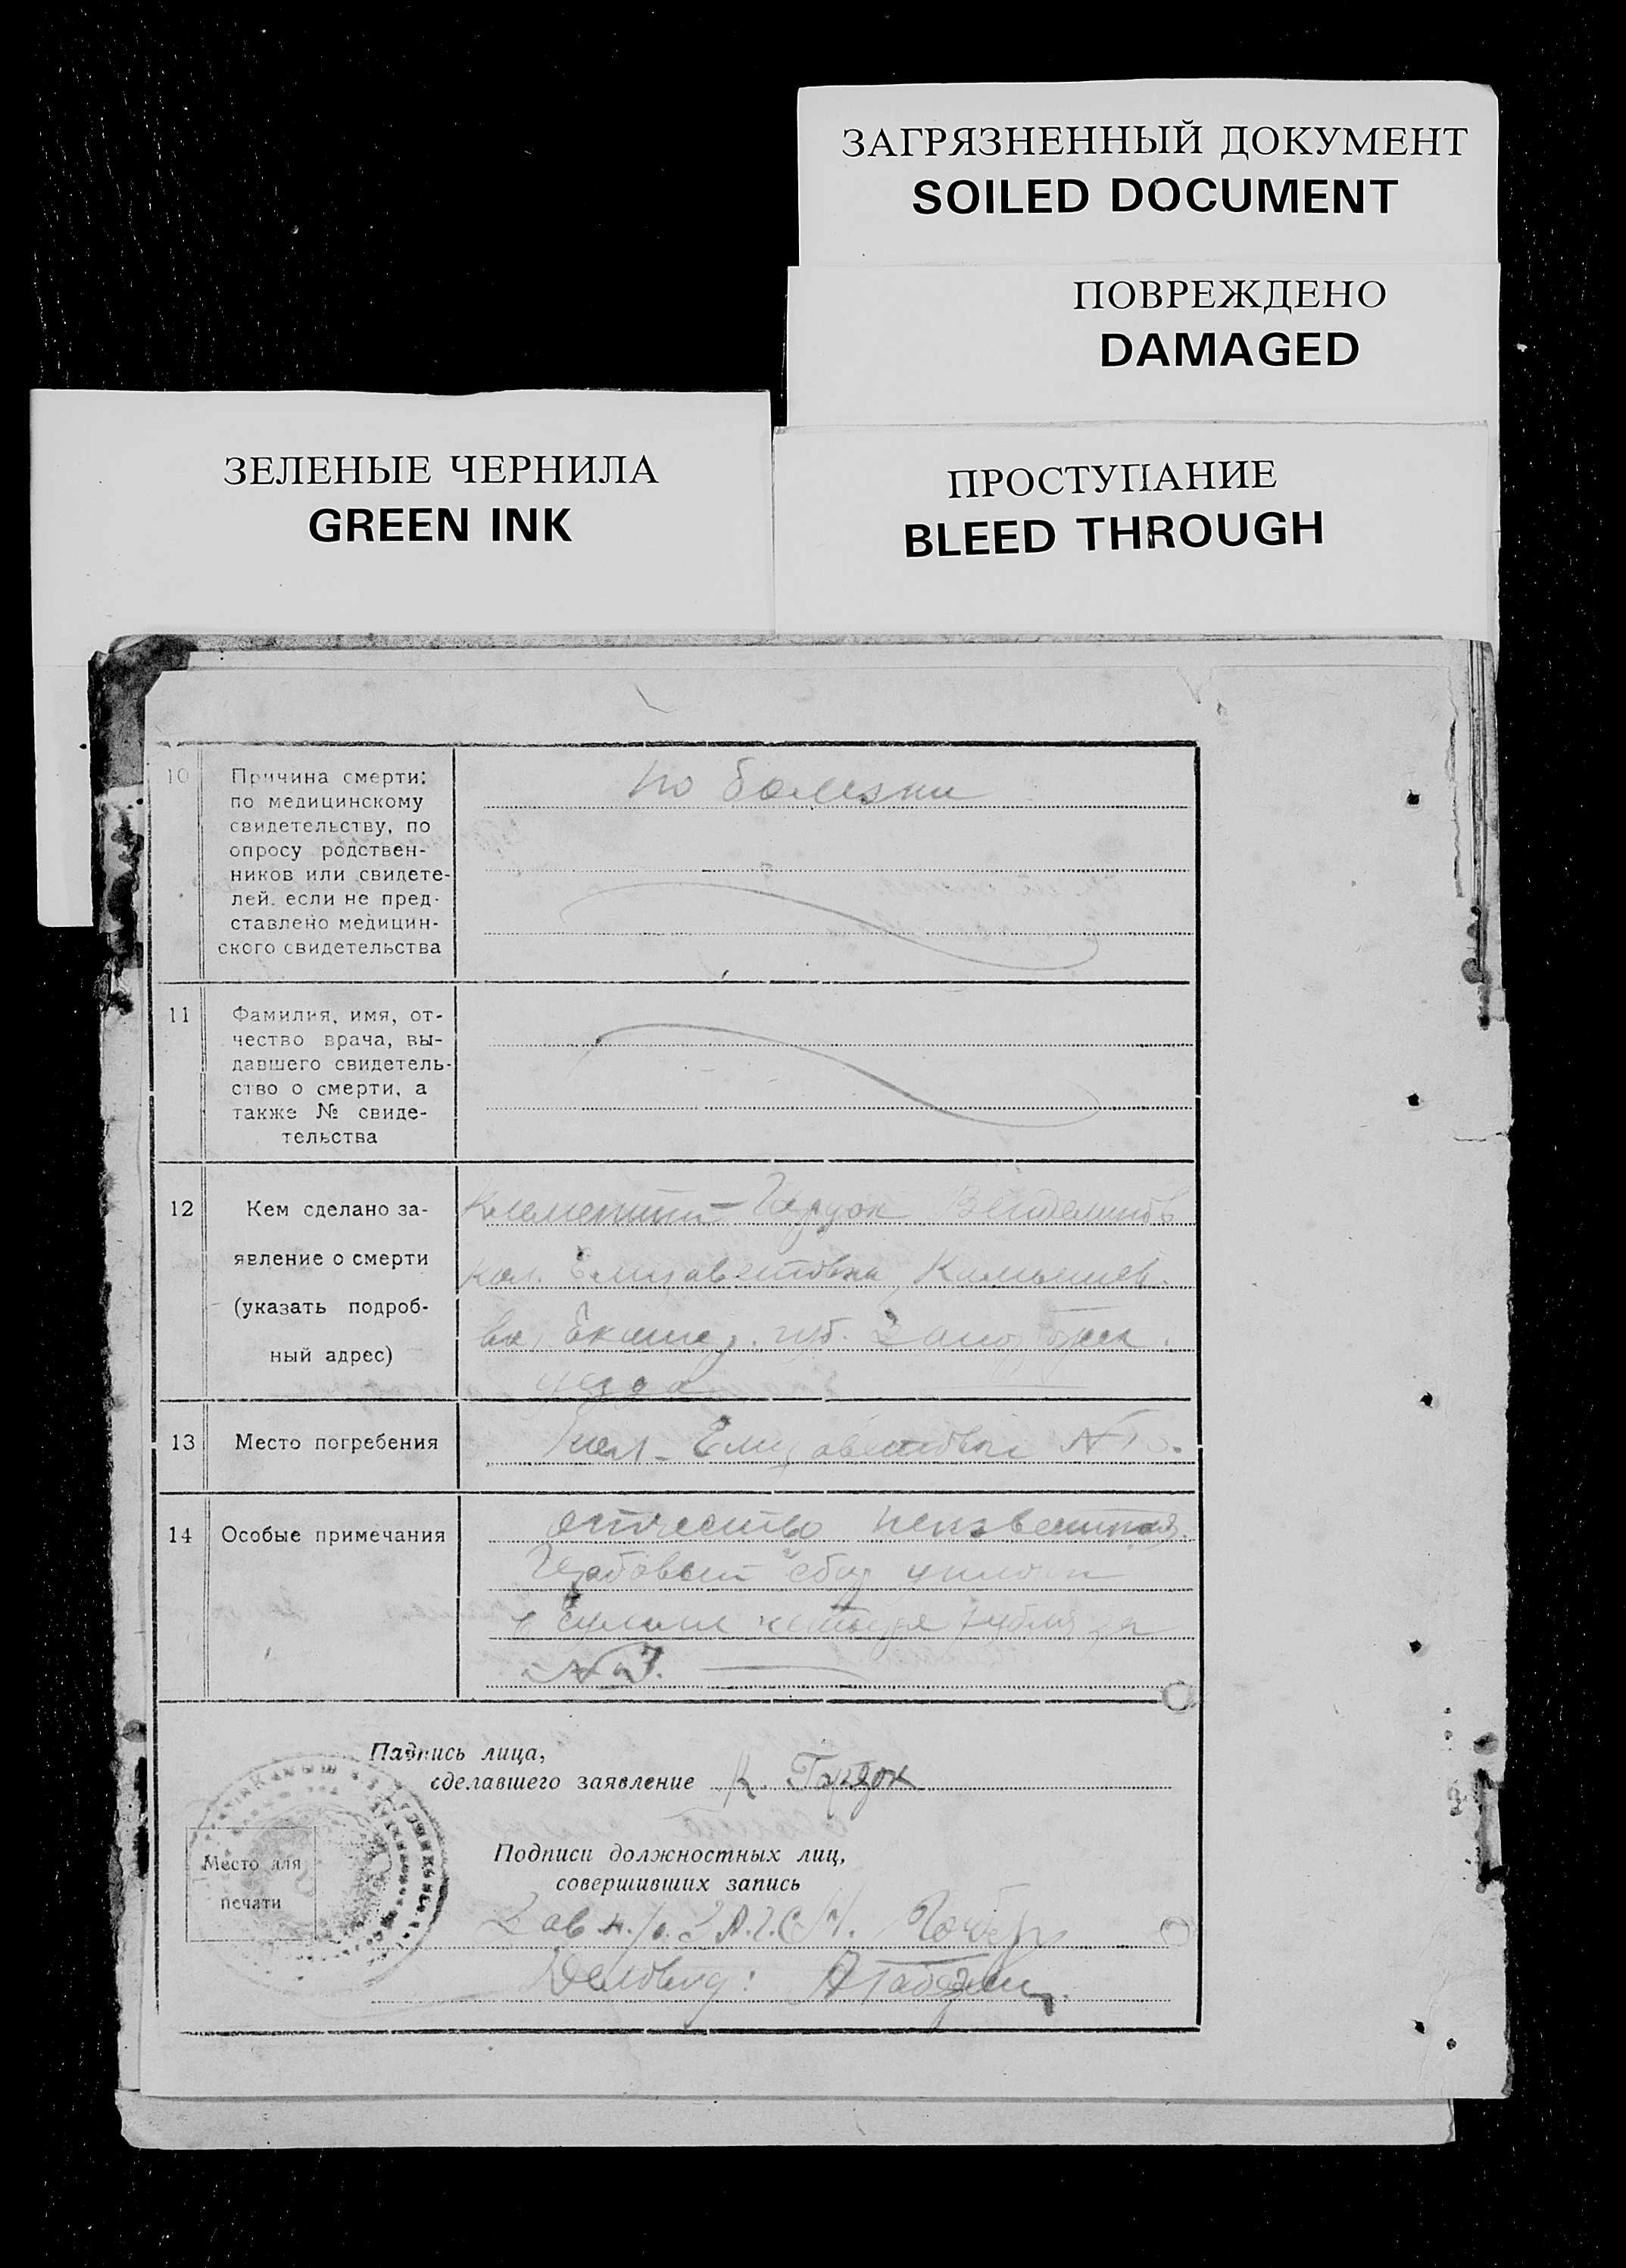 ЗАГРЯЗНЕННЫЙ ДОКУМЕНТ
SOILED DOCUMENT
ПОВРЕЖДЕНО
DAMAGED
ЗЕЛЕНЫЕ ЧЕРНИЛА
GREEN INK
ПРОСТУПАНИЕ
BLEED THROUGH
10
Причина смерти:
по медицинскому
свидетельству, по
опросу родствен-
ников или свидете-
лей. если не пред-
ставлено медицин-
ского свидетельства
по болезни
11
Фамилия, имя, от-
чество врача, вы-
давшего свидетель-
ство о смерти, а
также № свиде-
тельства
12
Кем сделано за-
явление о смерти
(указать подроб-
ный адрес)
Гардок
кол. Елизаветовка
Екатер. губ.
уезда
13
Место погребения
кол. Елизаветовка
14
Особые примечания
отчество неизвестная.
сбор
в сумме четыре рубля за
№ 7.
Подпись лица,
сделавшего заявление К. Гардок
Место для
печати
Подписи должностных лиц,
совершивших запись
Зав. З.А.Г.С.
Деловод: